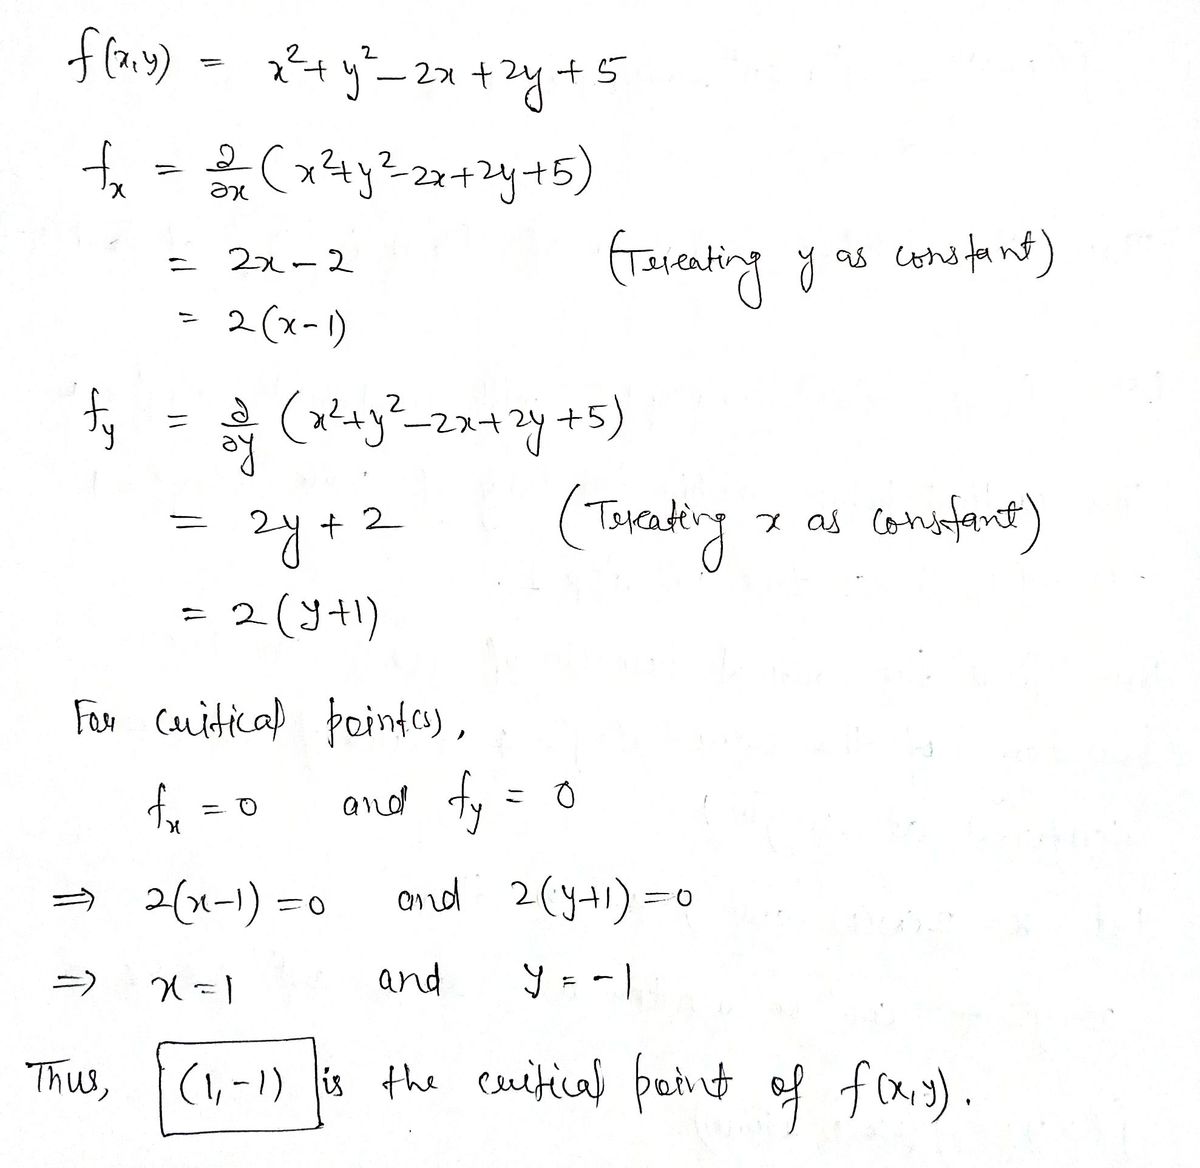 f(x,y) = x²+y²-2x+2y+5
fₓ = ∂/∂x (x²+y²-2x+2y+5)
= 2x-2 (Treating y as constant)
= 2(x-1)
f_y = ∂/∂y (x²+y²-2x+2y+5)
= 2y+2 (Treating x as constant)
= 2(y+1)
For critical point(s),
fₓ = 0 and f_y = 0
⇒ 2(x-1)=0 and 2(y+1)=0
⇒ x=1 and y=-1
Thus, (1,-1) is the critical point of f(x,y).